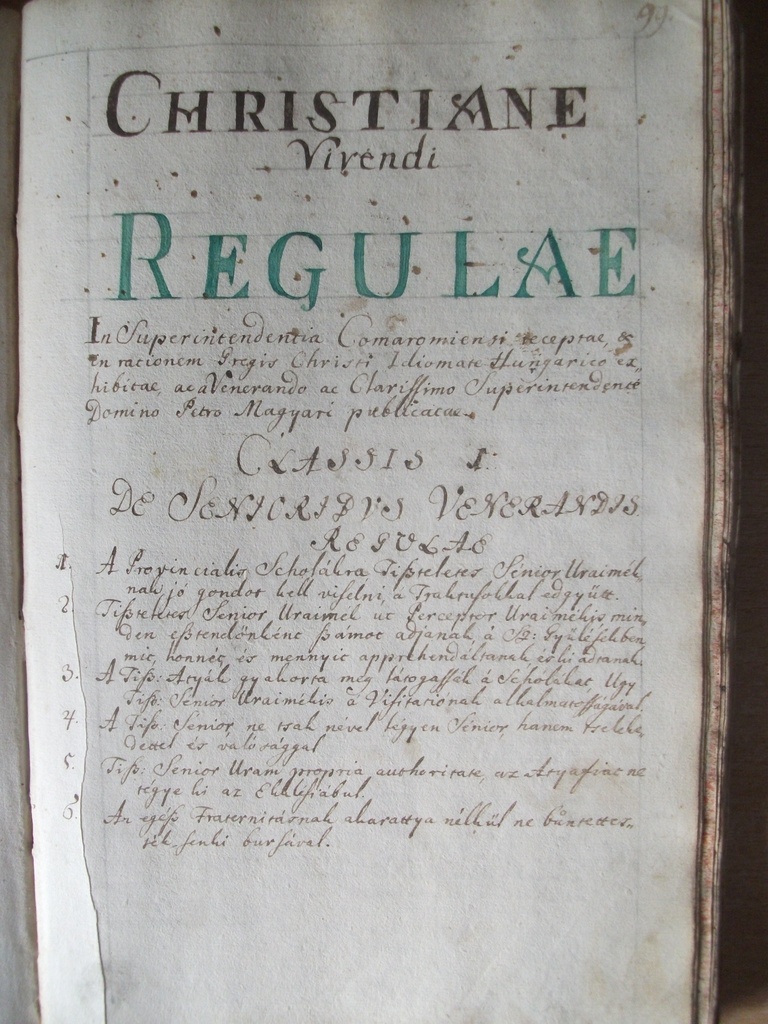 99.
CHRISTIANE
Vivendi
REGULAE
In Superintendentia Comaromiensi receptae, &
in rationem Gregis Christi Idiomate Hungarico ex„
hibitae, ac a Venerando ac Clarissimo Superintendente
Domino Petro Magyari publicatae.
CLASSIS I.
DE SENIORIBUS VENERANDIS
REGULAE
1. A Provincialis Scholákra Tißteletes Senior Uraimék„
nak jó gondot kell viselni, a Traktusokkal edgyütt.
2. Tißteletes Senior Uraimék ut Perceptor Uraimékis min„
den eßtendőnként ßámot adjanak, à Sz: Gyülésekben
mit, honnét, és mennyit apprehendáltanak, és ki adtanak.
3. A Tiß: Atyák gyakorta meg látogassák à Scholákat, Ugy
Tiß: Senior Uraimékis à Visitatiónak alkalmatosságával.
4. A Tiß: Senior, ne tsak névvel légyen Senior, hanem tseleke„
dettel és valósággal
5. Tiß: Senior Uram propria authoritate, az Atyafiat ne
tegye ki az Ekklésiábul.
6. Az egéß Fraternitásnak akarattya nélkűl ne bűntettes„
sék senki bursával.